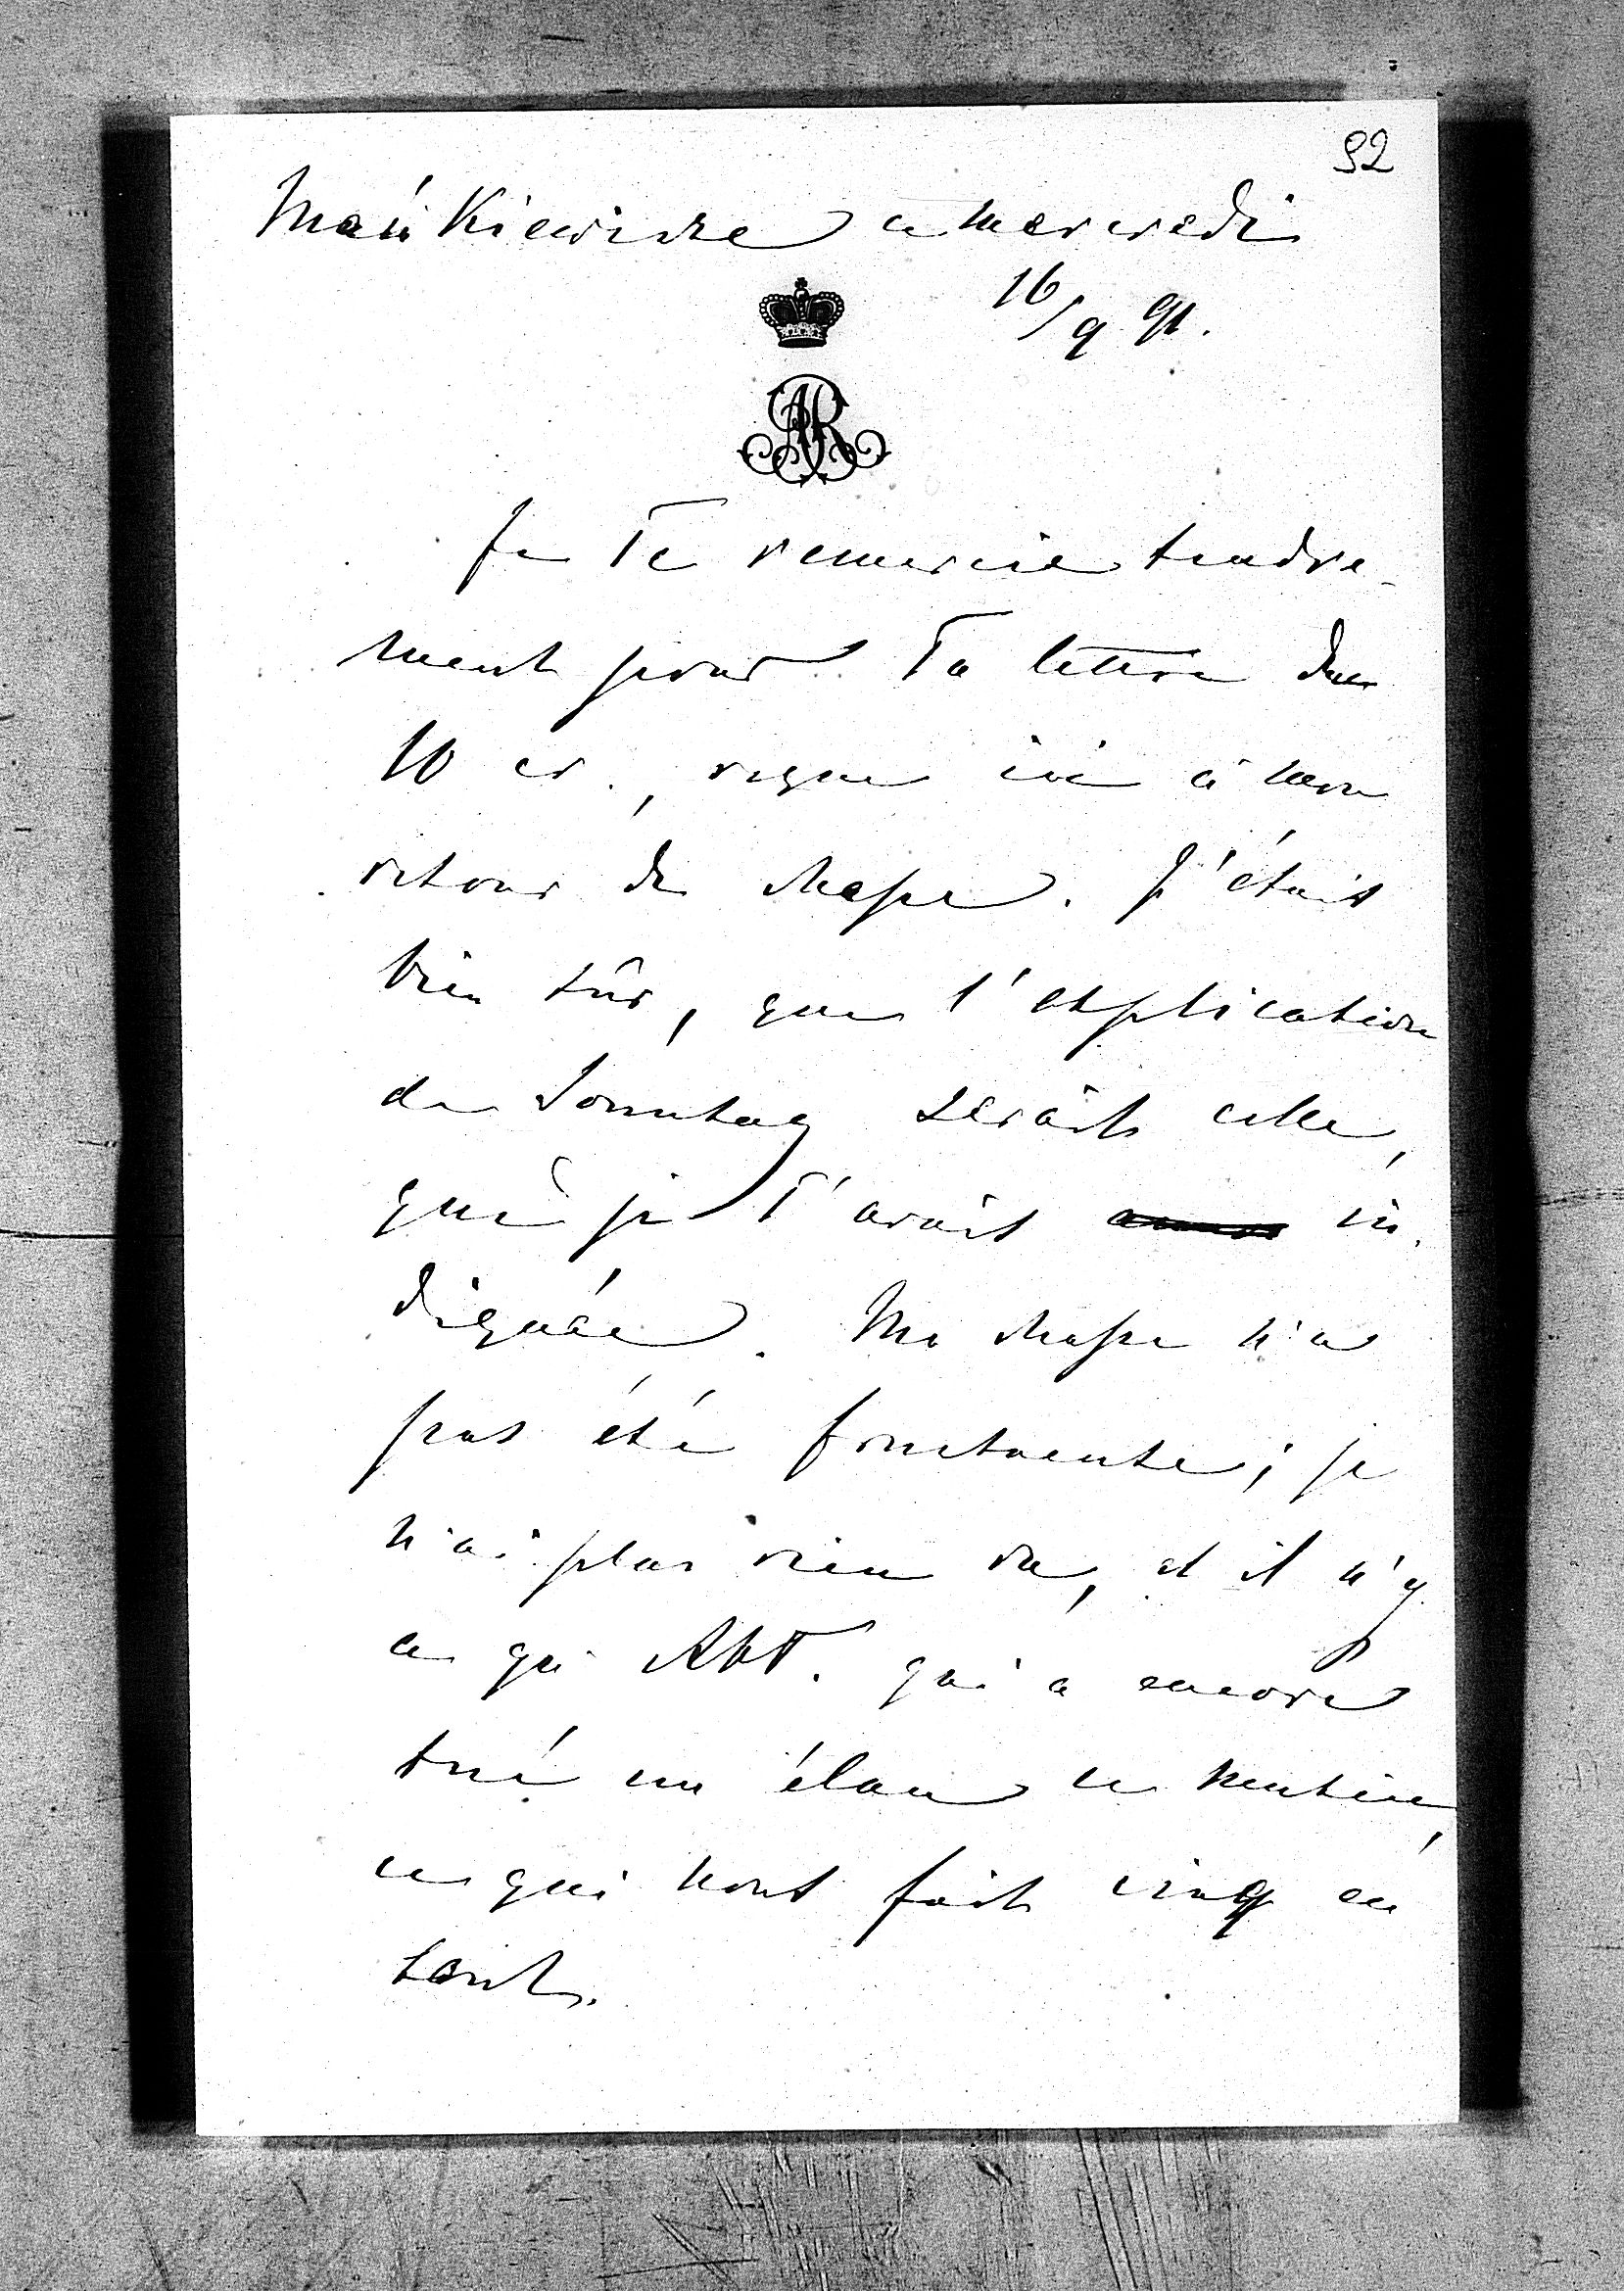 92
Mańkiewicze ce mercredi
16/9 91.
AR
Je Te remercie tendre-
ment pour Ta lettre du
10 cr., reçue ici à mon
retour de chasse. J'étais
bien sûr, que l'explication
de Sonntag serait celle,
que je T'avais in-
diquée. Ma chasse n'a
pas été fructueuse; je
n'ai plus rien vu, et il n'y
a qu' qui a encore
tué un élan ce matin,
ce qui nous fait cinq en
tout.